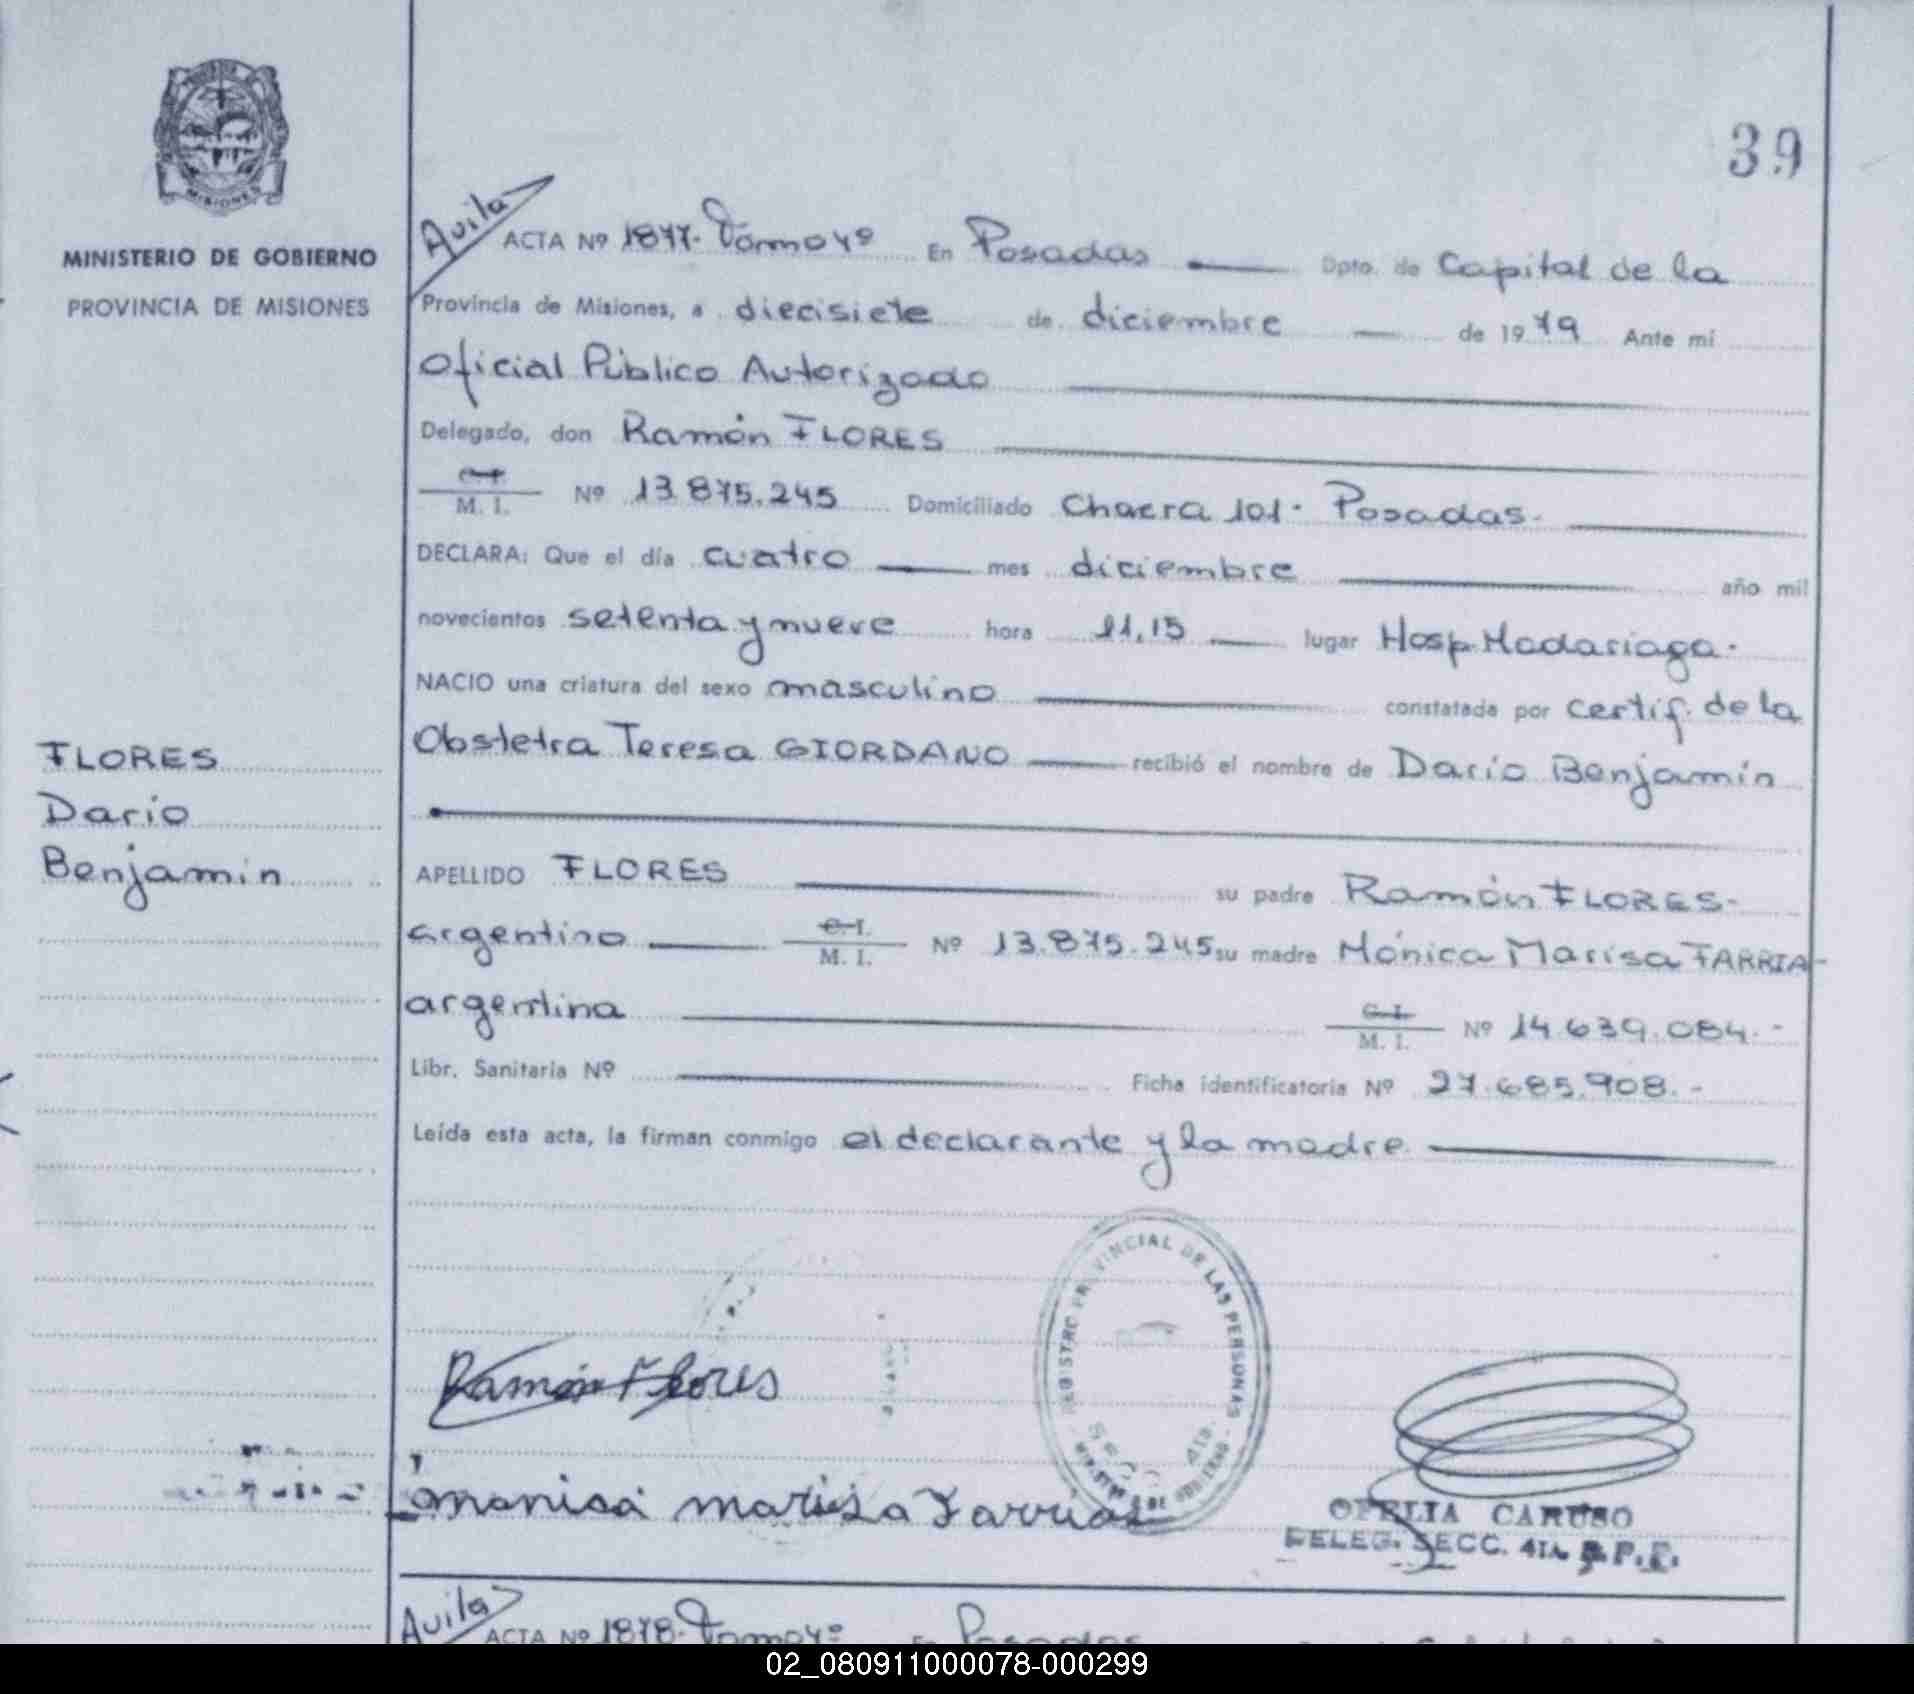 39
MISIONES
MINISTERIO DE GOBIERNO
PROVINCIA DE MISIONES
Avila
ACTA Nº 1877. Tomo 4º En Posadas Dpto. de Capital de la
Provincia de Misiones, a diecisiete de diciembre de 1979 Ante mi
Oficial Público Autorizado
Delegado, don Ramón FLORES
C. I.
M. I. Nº 13.875.245 Domiciliado Chacra 101. Posadas.
DECLARA: Que el día cuatro mes diciembre año mil
novecientos setenta y nueve hora 11,15 lugar Hosp. Madariaga.
NACIO una criatura del sexo masculino constatada por certif. de la
Obstetra Teresa GIORDANO recibió el nombre de Darío Benjamín
FLORES
Dario
Benjamin
APELLIDO FLORES su padre Ramón FLORES-
argentino C. I.
M. I. Nº 13.875.245 su madre Mónica Marisa FARRIA-
argentina C. I.
M. I. Nº 14.639.084.-
Libr. Sanitaria Nº Ficha identificatoria Nº 27.685.908.-
Leída esta acta, la firman conmigo el declarante y la madre
REGISTRO PROVINCIAL DE LAS PERSONAS
SECC. 4ta.
MINISTERIO DE GOBIERNO
Ramón Flores
monica marisa Farria
OFELIA CARUSO
DELEG. SECC. 4TA. R.P.P.
Avila
ACTA Nº 1878. Tomo 4º En Posadas
02_080911000078-000299